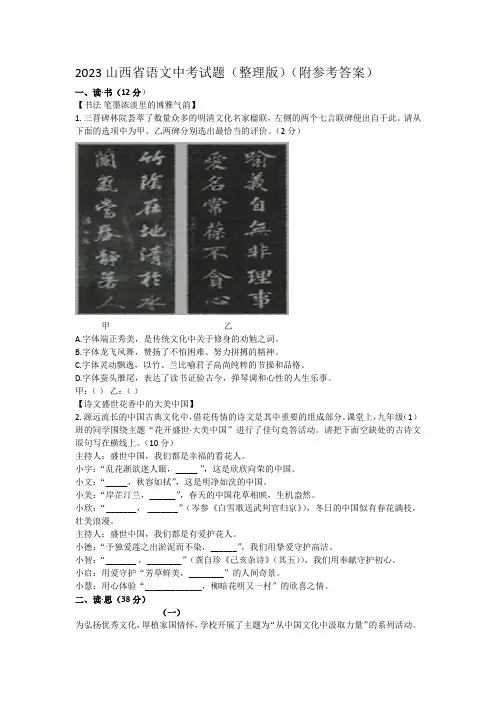 2023 山西省语文中考试题（整理版）（附参考答案）
一、读·书（12 分）
【书法 笔墨浓淡里的博雅气韵】
1. 三晋碑林院荟萃了数量众多的明清文化名家楹联，左侧的两个七言联碑便出自于此。请从
下面的选项中为甲、乙两碑分别选出最恰当的评价。（2 分）
竹陰在地清於水
蘭氣當春靜若人
喻義自無非理事
愛名常葆不貪心
甲 乙
A.字体端正秀美，是传统文化中关于修身的劝勉之词。
B.字体龙飞凤舞，赞扬了不怕困难、努力拼搏的精神。
C.字体灵动飘逸，以竹、兰比喻君子高尚纯粹的节操和品格。
D.字体蚕头雁尾，表达了读书证验古今，弹琴调和心性的人生乐事。
甲：（ ） 乙：（ ）
【诗文盛世花香中的大美中国】
2. 源远流长的中国古典文化中，借花传情的诗文是其中重要的组成部分。课堂上，九年级（1）
班的同学围绕主题“花开盛世·大美中国”进行了佳句竞答活动。请把下面空缺处的古诗文
原句写在横线上。（10 分）
主持人：盛世中国，我们都是幸福的看花人。
小宇：“乱花渐欲迷人眼，_____ ”，这是欣欣向荣的中国。
小文：“_____，秋容如拭”，这是明净如洗的中国。
小美：“岸芷汀兰，______”，春天的中国花草相映，生机盎然。
小欣：“_______， _______ ”（岑参《白雪歌送武判官归京》），冬日的中国似有春花满枝，
壮美浪漫。
主持人：盛世中国，我们都是有爱护花人。
小德：“予独爱莲之出淤泥而不染，______”，我们用挚爱守护高洁。
小智：“_______ ，________”（龚自珍《己亥杂诗》（其五）），我们用奉献守护初心。
小启：用爱守护“芳草鲜美，________”的人间奇景。
小慧：用心体验“_____________，柳暗花明又一村”的欣喜之情。
二、读·思（38 分）
（一）
为弘扬优秀文化，厚植家国情怀，学校开展了主题为“从中国文化中汲取力量”的系列活动。